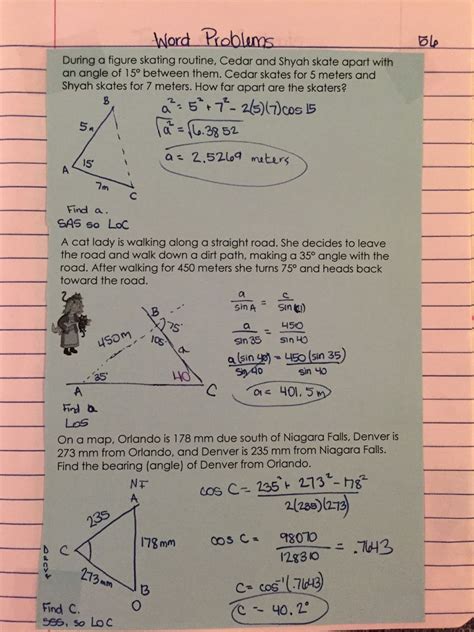 Word Problems 56
During a figure skating routine, Cedar and Shyah skate apart with
an angle of 15° between them. Cedar skates for 5 meters and
Shyah skates for 7 meters. How far apart are the skaters?
B
5m
A
15°
7m
C
a² = 5² + 7² - 2(5)(7)cos 15
√a² = √6.3852
a = 2.5269 meters
Find a.
SAS so LoC
A cat lady is walking along a straight road. She decides to leave
the road and walk down a dirt path, making a 35° angle with the
road. After walking for 450 meters she turns 75° and heads back
toward the road.
B
75°
105
450m
a
35°
40
A
C
Find a
LoS
a/sin A = c/sin
a/sin 35 = 450/sin 40
a(sin 40)/sin 40 = 450(sin 35)/sin 40
a = 401.5m
On a map, Orlando is 178 mm due south of Niagara Falls, Denver is
273 mm from Orlando, and Denver is 235 mm from Niagara Falls.
Find the bearing (angle) of Denver from Orlando.
NF
A
235
178mm
C
273mm
B
O
cos C = 235² + 273² - 178²/2(235)(273)
cos C = 98070/128310 = .7643
C = cos⁻¹(.7643)
C = 40.2°
Find C.
SSS, so LoC